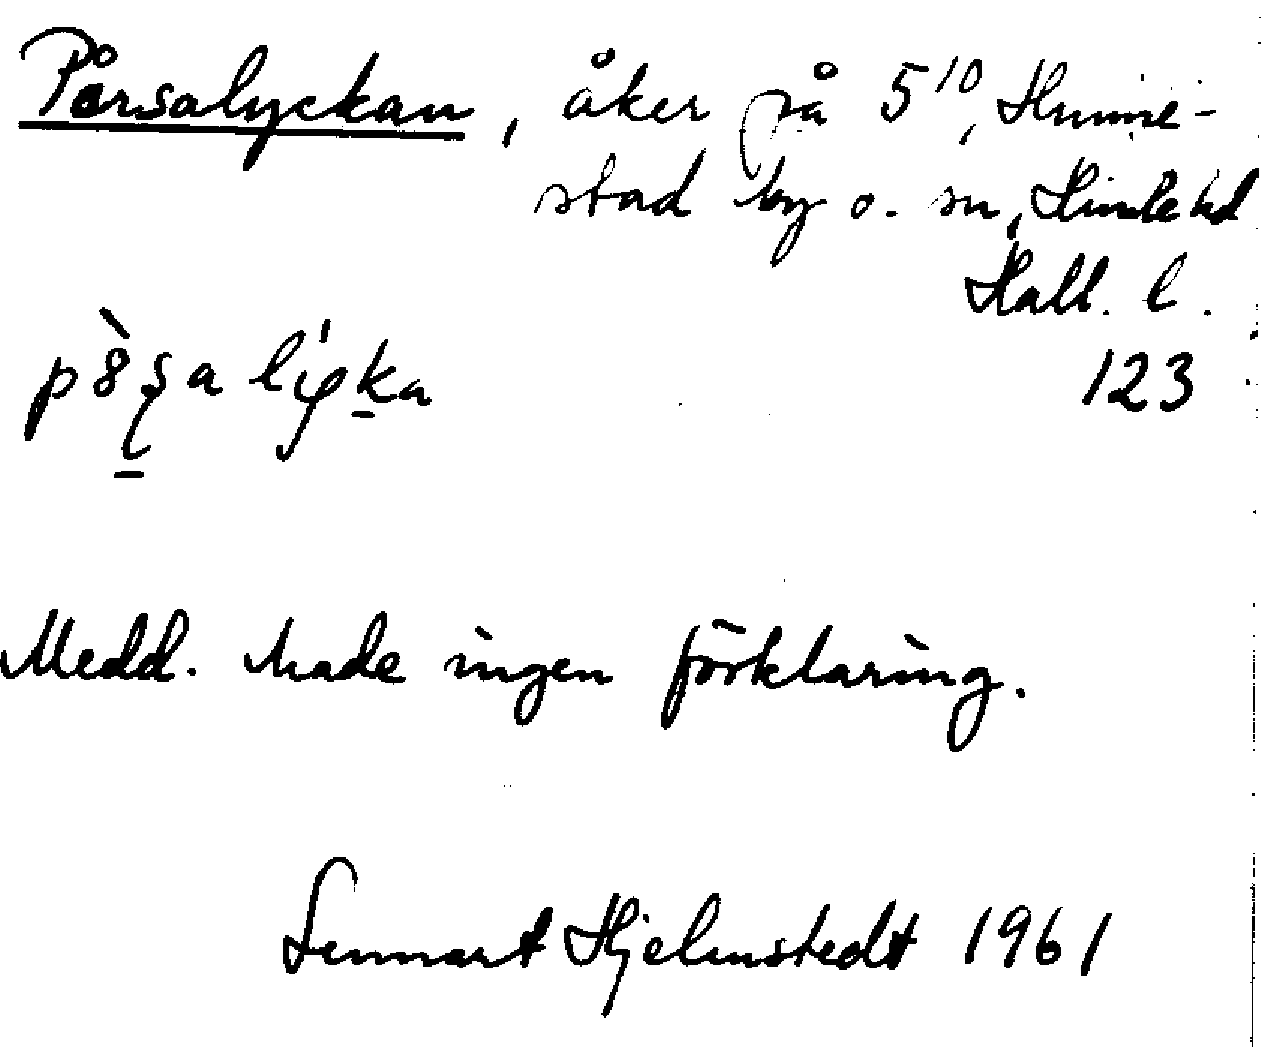 Pårsalyckan, åker på 5¹⁰, Hunne-
stad by o. sn, Himle hd
Hall. l.
123
Medd. hade ingen förklaring.
Lennart Hjelmstedt 1961